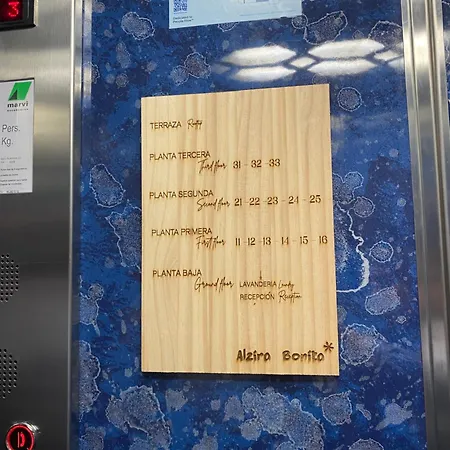 3
marvi
Pers.
Kg.
TERRAZA Rooftop
PLANTA TERCERA
Third floor 31 - 32 - 33
PLANTA SEGUNDA
Second floor 21 - 22 - 23 - 24 - 25
PLANTA PRIMERA
First floor 11 - 12 - 13 - 14 - 15 - 16
PLANTA BAJA
Ground floor LAVANDERÍA Laundry
RECEPCIÓN Reception
Alzira Bonita*